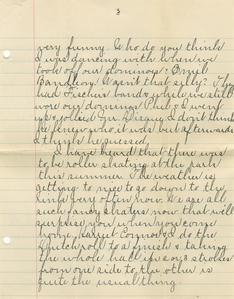 3
very funny. Who do you think
I was dancing with when we
took off our dominos? Emil
Isn't that silly? They
had Fischer's band & while we still
wore our dominos Phil & I went
up & jollied Gen. I don't think
he knew who it was but afterwards
I think he guessed.
I have heard that there was
to be roller skating at the park
this summer. The weather is
getting to nice to go down to the
rink very often now. We are all
such fancy skaters now that will
surprise you when you come
home. Harriet Connor & I do the
Dutch roll to a finish & taking
the whole hall if say 3 strokes
from one side to the other is
quite the usual thing